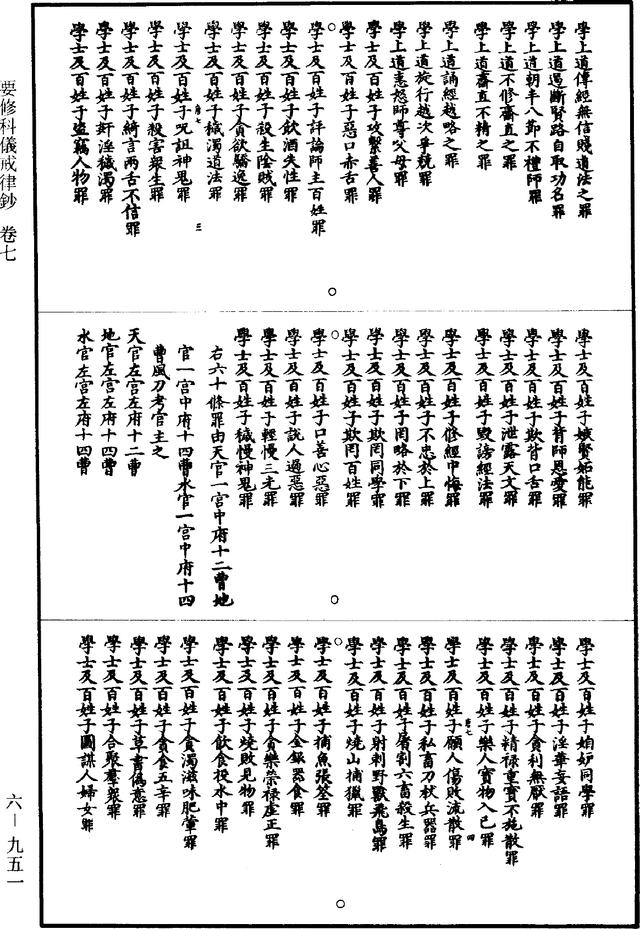 學上道傳經無信賤道法之罪
學上道遏斷賢路自取功名罪
學上道朝半八節不禮師罪
學上道不修齋直之罪
學上道齋直不精之罪
學上道誦經越略之罪
學上道旋行越次爭競罪
學上道恚怒師尊父母罪
學士及百姓子攻擊善人罪
學士及百姓子惡口赤舌罪
學士及百姓子評論師主百姓罪
學士及百姓子飲酒失性罪
學士及百姓子殺生陰賊罪
學士及百姓子貪欲驕逸罪
學士及百姓子穢濁道法罪
學士及百姓子呪詛神鬼罪
學士及百姓子殺害衆生罪
學士及百姓子綺言兩舌不信罪
學士及百姓子奸淫穢濁罪
學士及百姓子盜竊人物罪
學士及百姓子嫉賢妬能罪
學士及百姓子背師恩愛罪
學士及百姓子欺背口舌罪
學士及百姓子泄露天文罪
學士及百姓子毀謗經法罪
學士及百姓子修經中悔罪
學士及百姓子不忠於上罪
學士及百姓子罔略於下罪
學士及百姓子欺罔同學罪
學士及百姓子欺罔百姓罪
學士及百姓子口善心惡罪
學士及百姓子說人過惡罪
學士及百姓子輕慢三光罪
學士及百姓子穢慢神鬼罪
右六十條罪由天官一宮中府十二曹地
官一宮中府十四曹水官一宮中府十四
曹風刀考官主之
天官左宮左府十二曹
地官左宮左府十四曹
水官左宮左府十四曹
學士及百姓子妬妒同學罪
學士及百姓子淫華妄語罪
學士及百姓子貪利無厭罪
學士及百姓子積祿重寶不施散罪
學士及百姓子樂人寶物入己罪
學士及百姓子願人傷敗流散罪
學士及百姓子私畜刀杖兵器罪
學士及百姓子屠割六畜殺生罪
學士及百姓子射刺野獸飛鳥罪
學士及百姓子燒山捕獵罪
學士及百姓子捕魚張筌罪
學士及百姓子金銀器食罪
學士及百姓子貪樂榮祿虛正罪
學士及百姓子燒敗見物罪
學士及百姓子飲食投水中罪
學士及百姓子貪濁滋味肥葷罪
學士及百姓子貪食五辛罪
學士及百姓子草書僞意罪
學士及百姓子合聚羣衆罪
學士及百姓子圖謀人婦女罪
要修科儀戒律鈔 卷七
六—九五一